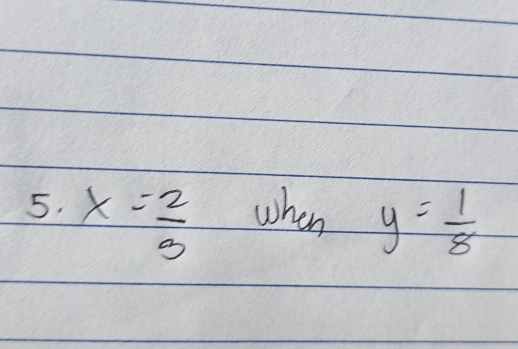 5. x = 2/3 when y = 1/8